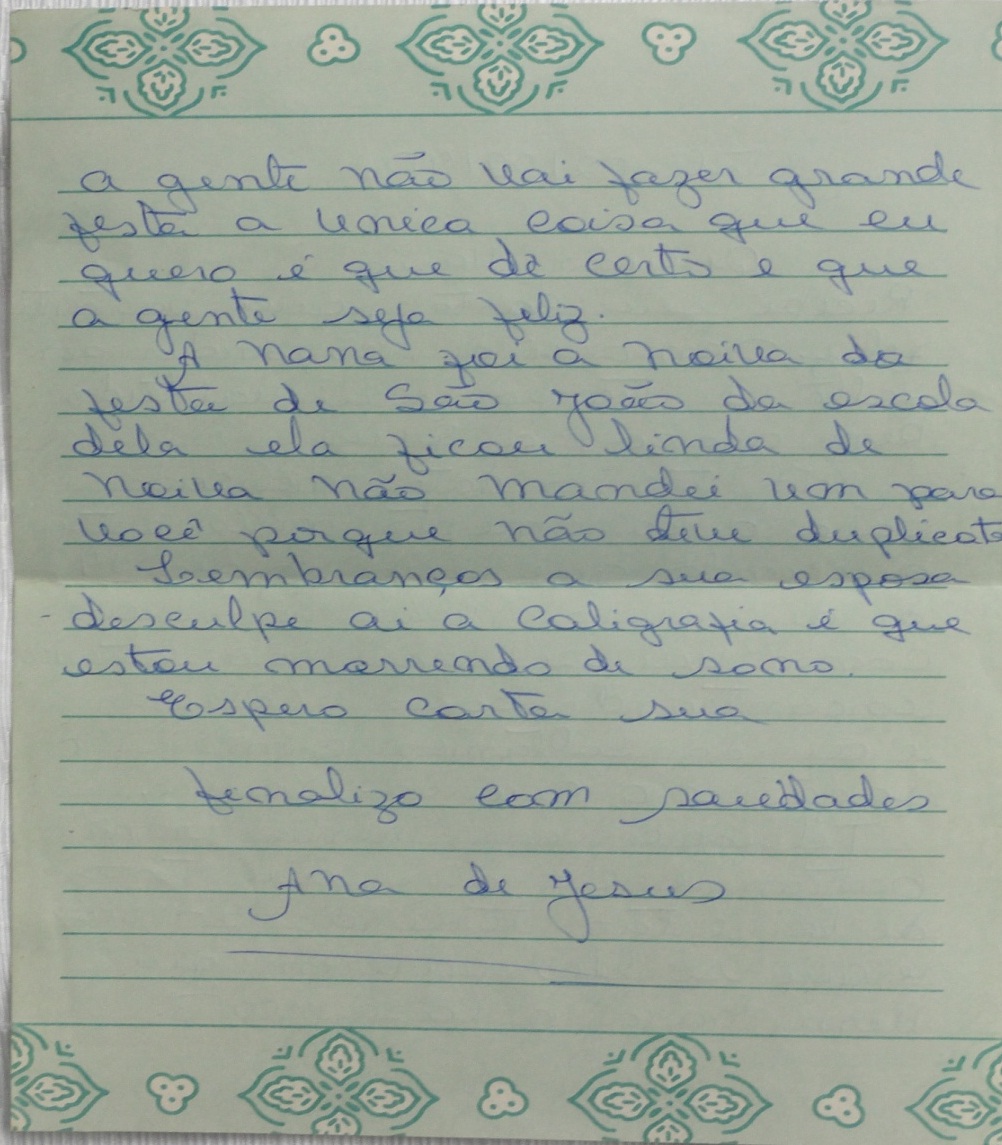 a gente não vai fazer grande
festa a unica coisa que eu
quero é que dê certo e que
a gente seja feliz.
A Nana foi a noiva da
festa de São João da escola
dela ela ficou linda de
noiva não mandei um para
você porque não teve duplicata
Lembranças a sua esposa
desculpe ai a caligrafia é que
estou morrendo de sono.
Espero carta sua
finalizo com saudades
Ana de Jesus